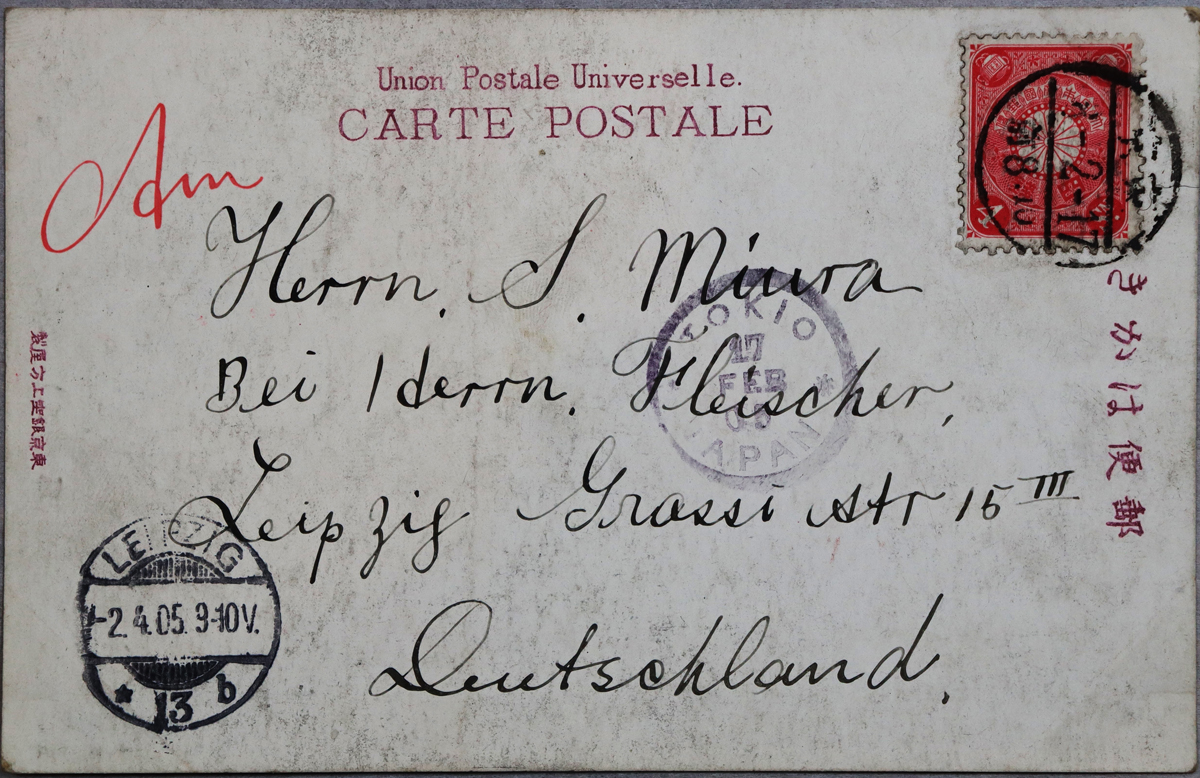 Union Postale Universelle.
CARTE POSTALE
Am
Herrn. S. Miura
Bei Herrn. Fleischer,
Leipzig Grassi str 15 III
Deutschland.
TOKIO
17
FEB
05
JAPAN
LEIPZIG
2.4.05. 9-10V.
* 13 b
4
38-2-17
きかは便郵
製屋方上座銀京東